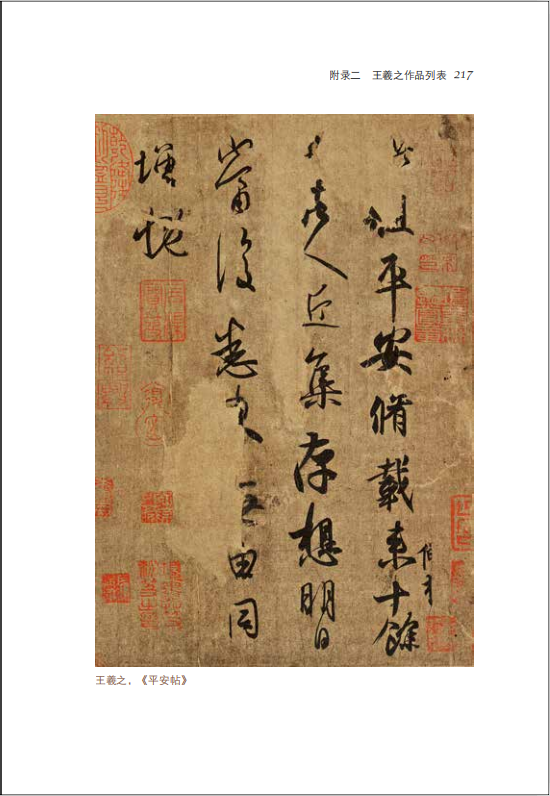 附录二　王羲之作品列表 217
此粗平安脩載来十餘
日諸人近集存想明日
當復悉来无由同
增慨
王羲之，《平安帖》